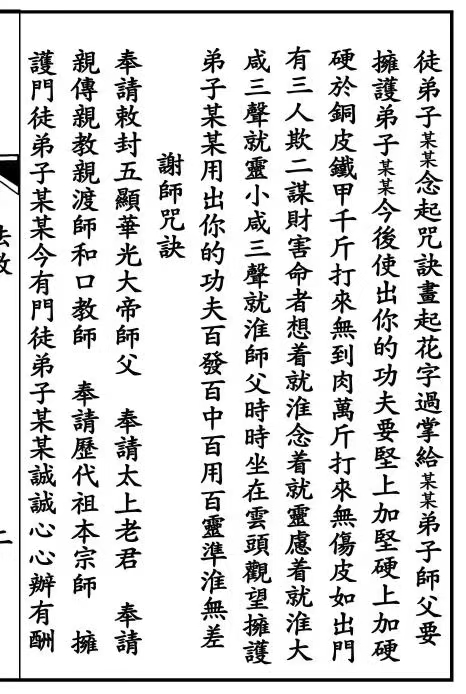 徒弟子某某念起咒訣畫起花字過掌給某某弟子師父要
擁護弟子某某今後使出你的功夫要堅上加堅硬上加硬
硬於銅皮鐵甲千斤打來無到肉萬斤打來無傷皮如出門
有三人欺二謀財害命者想着就淮念着就靈慮着就淮大
咸三聲就靈小咸三聲就淮師父時時坐在雲頭觀望擁護
弟子某某用出你的功夫百發百中百用百靈準淮無差
謝師咒訣
奉請敕封五顯華光大帝師父　奉請太上老君　奉請
親傳親教親渡師和口教師　奉請歷代祖本宗師　擁
護門徒弟子某某今有門徒弟子某某誠誠心心辦有酬